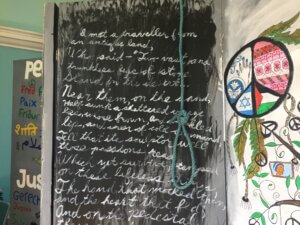 Pe
Paix
शांति
Jus
Gerech
I met a traveller from
an antique land,
Who said - "Two vast and
trunkless legs of stone
Stand in the
Near them on the sand,
Half sunk a shattered visage
lies, whose frown, and
lip, and sneer of cold
Tell that its sculptor well
those passions read
Which yet survive,
on these lifeless
The hand that mocked them,
and the heart that fed
And on the pedestal